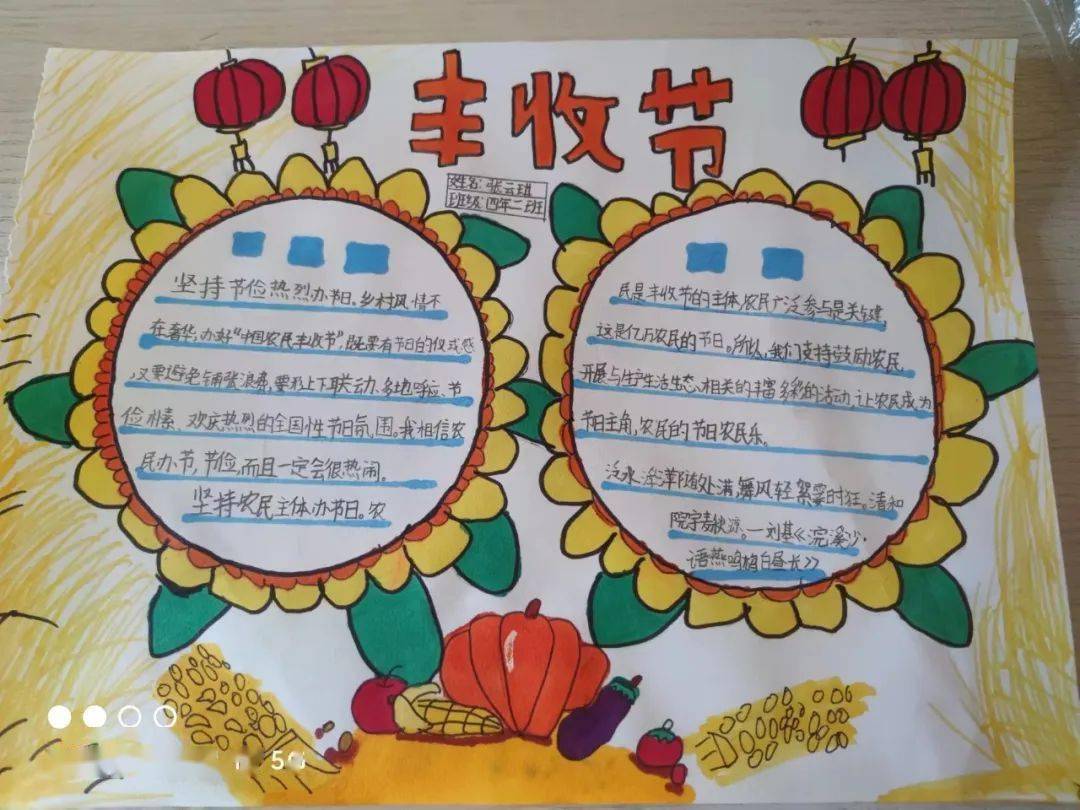 丰收节
姓名:张云琪
班级:四年二班
坚持节俭热烈办节日。乡村风情不
在奢华,办好“中国农民丰收节”,既要有节日的仪式感
,又要避免铺张浪费,要形上下联动、多地呼应、节
俭朴素、欢庆热烈的全国性节日氛围。我相信农
民办节,节俭,而且一定会很热闹。
坚持农民主体办节日。农
民是丰收节的主体,农民广泛参与是关键,
这是亿万农民的节日。所以,我们支持鼓励农民
开展与生产生活生态,相关的丰富多彩的活动,让农民成为
节日主角,农民的节日农民乐。
泛水浮萍随处满,舞风轻絮霎时狂。清和
院宇麦秋凉。一刘基《浣溪沙·
语燕鸣鸠白昼长》
5G